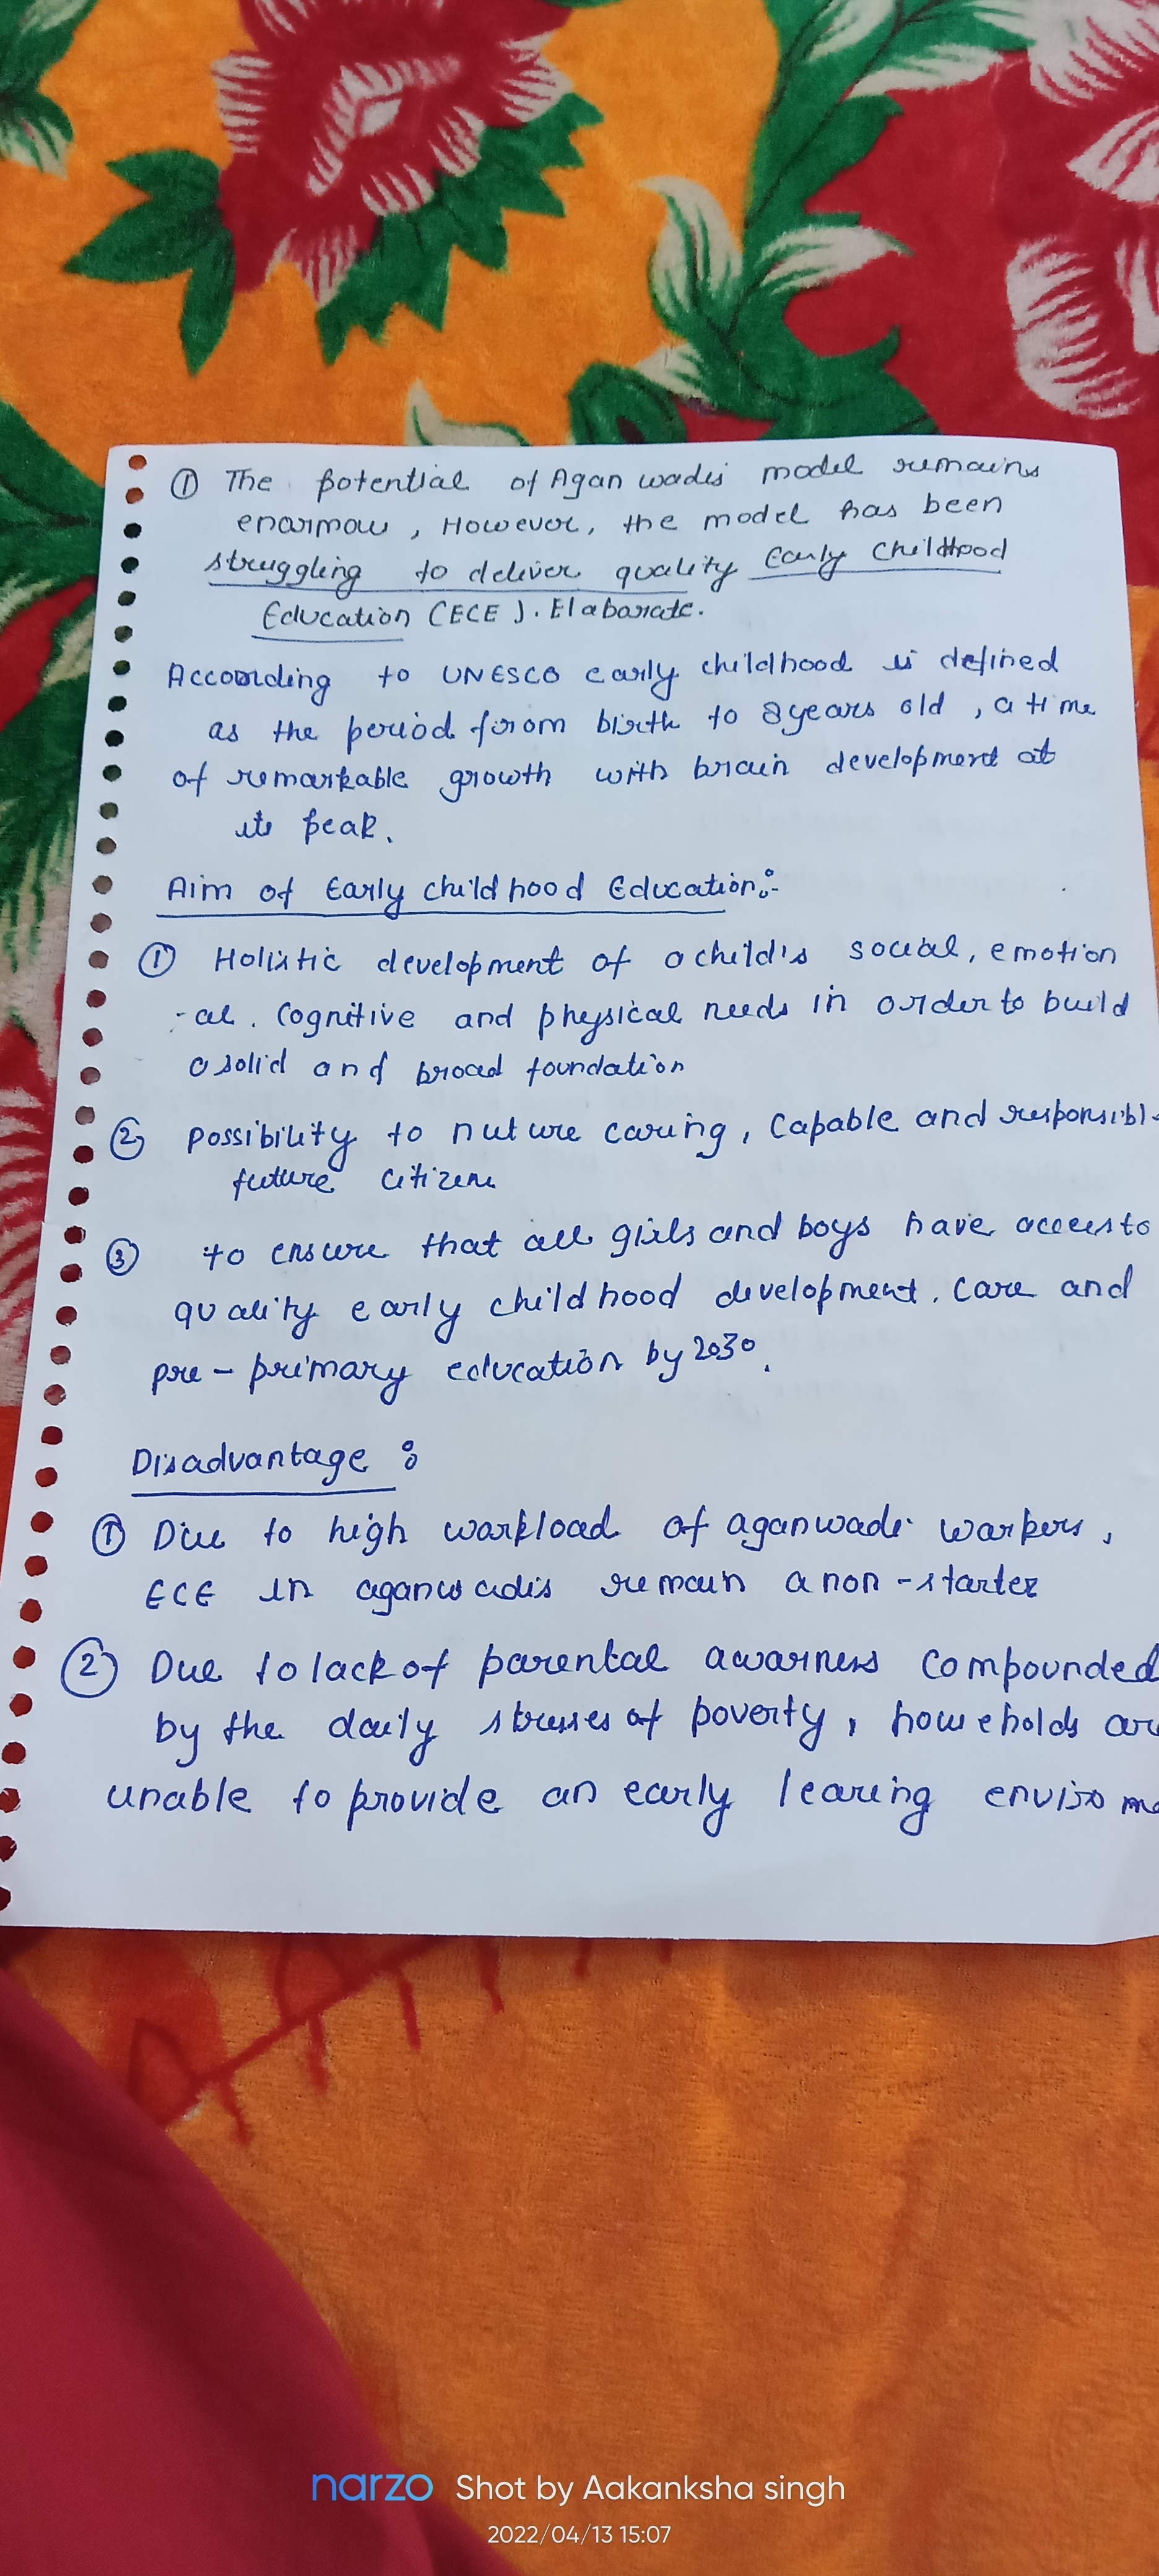 ① The potential of Agan wadis model remains
enarmou , However, the model has been
struggling to deliver quality Early Childhood
Education (ECE). Elaborate.
According to UNESCO early childhood is defined
as the period from birth to 8 years old , a time
of remarkable growth with brain development at
its peak.
Aim of Early childhood Education:-
① Holistic development of a child's social, emotion
-al. Cognitive and physical needs in order to build
a solid and broad foundation
② possibility to nuture caring, Capable and responsibl
future citizens
③ to ensure that all girls and boys have access to
quality early childhood development, care and
pre-primary education by 2030.
Disadvantage :
① Due to high workload of aganwadi workers,
ECE in aganwadis remain a non-starter
② Due to lack of parental awarness compounded
by the daily stresses of poverty, households are
unable to provide an early learing enviro
narzo Shot by Aakanksha singh
2022/04/13 15:07